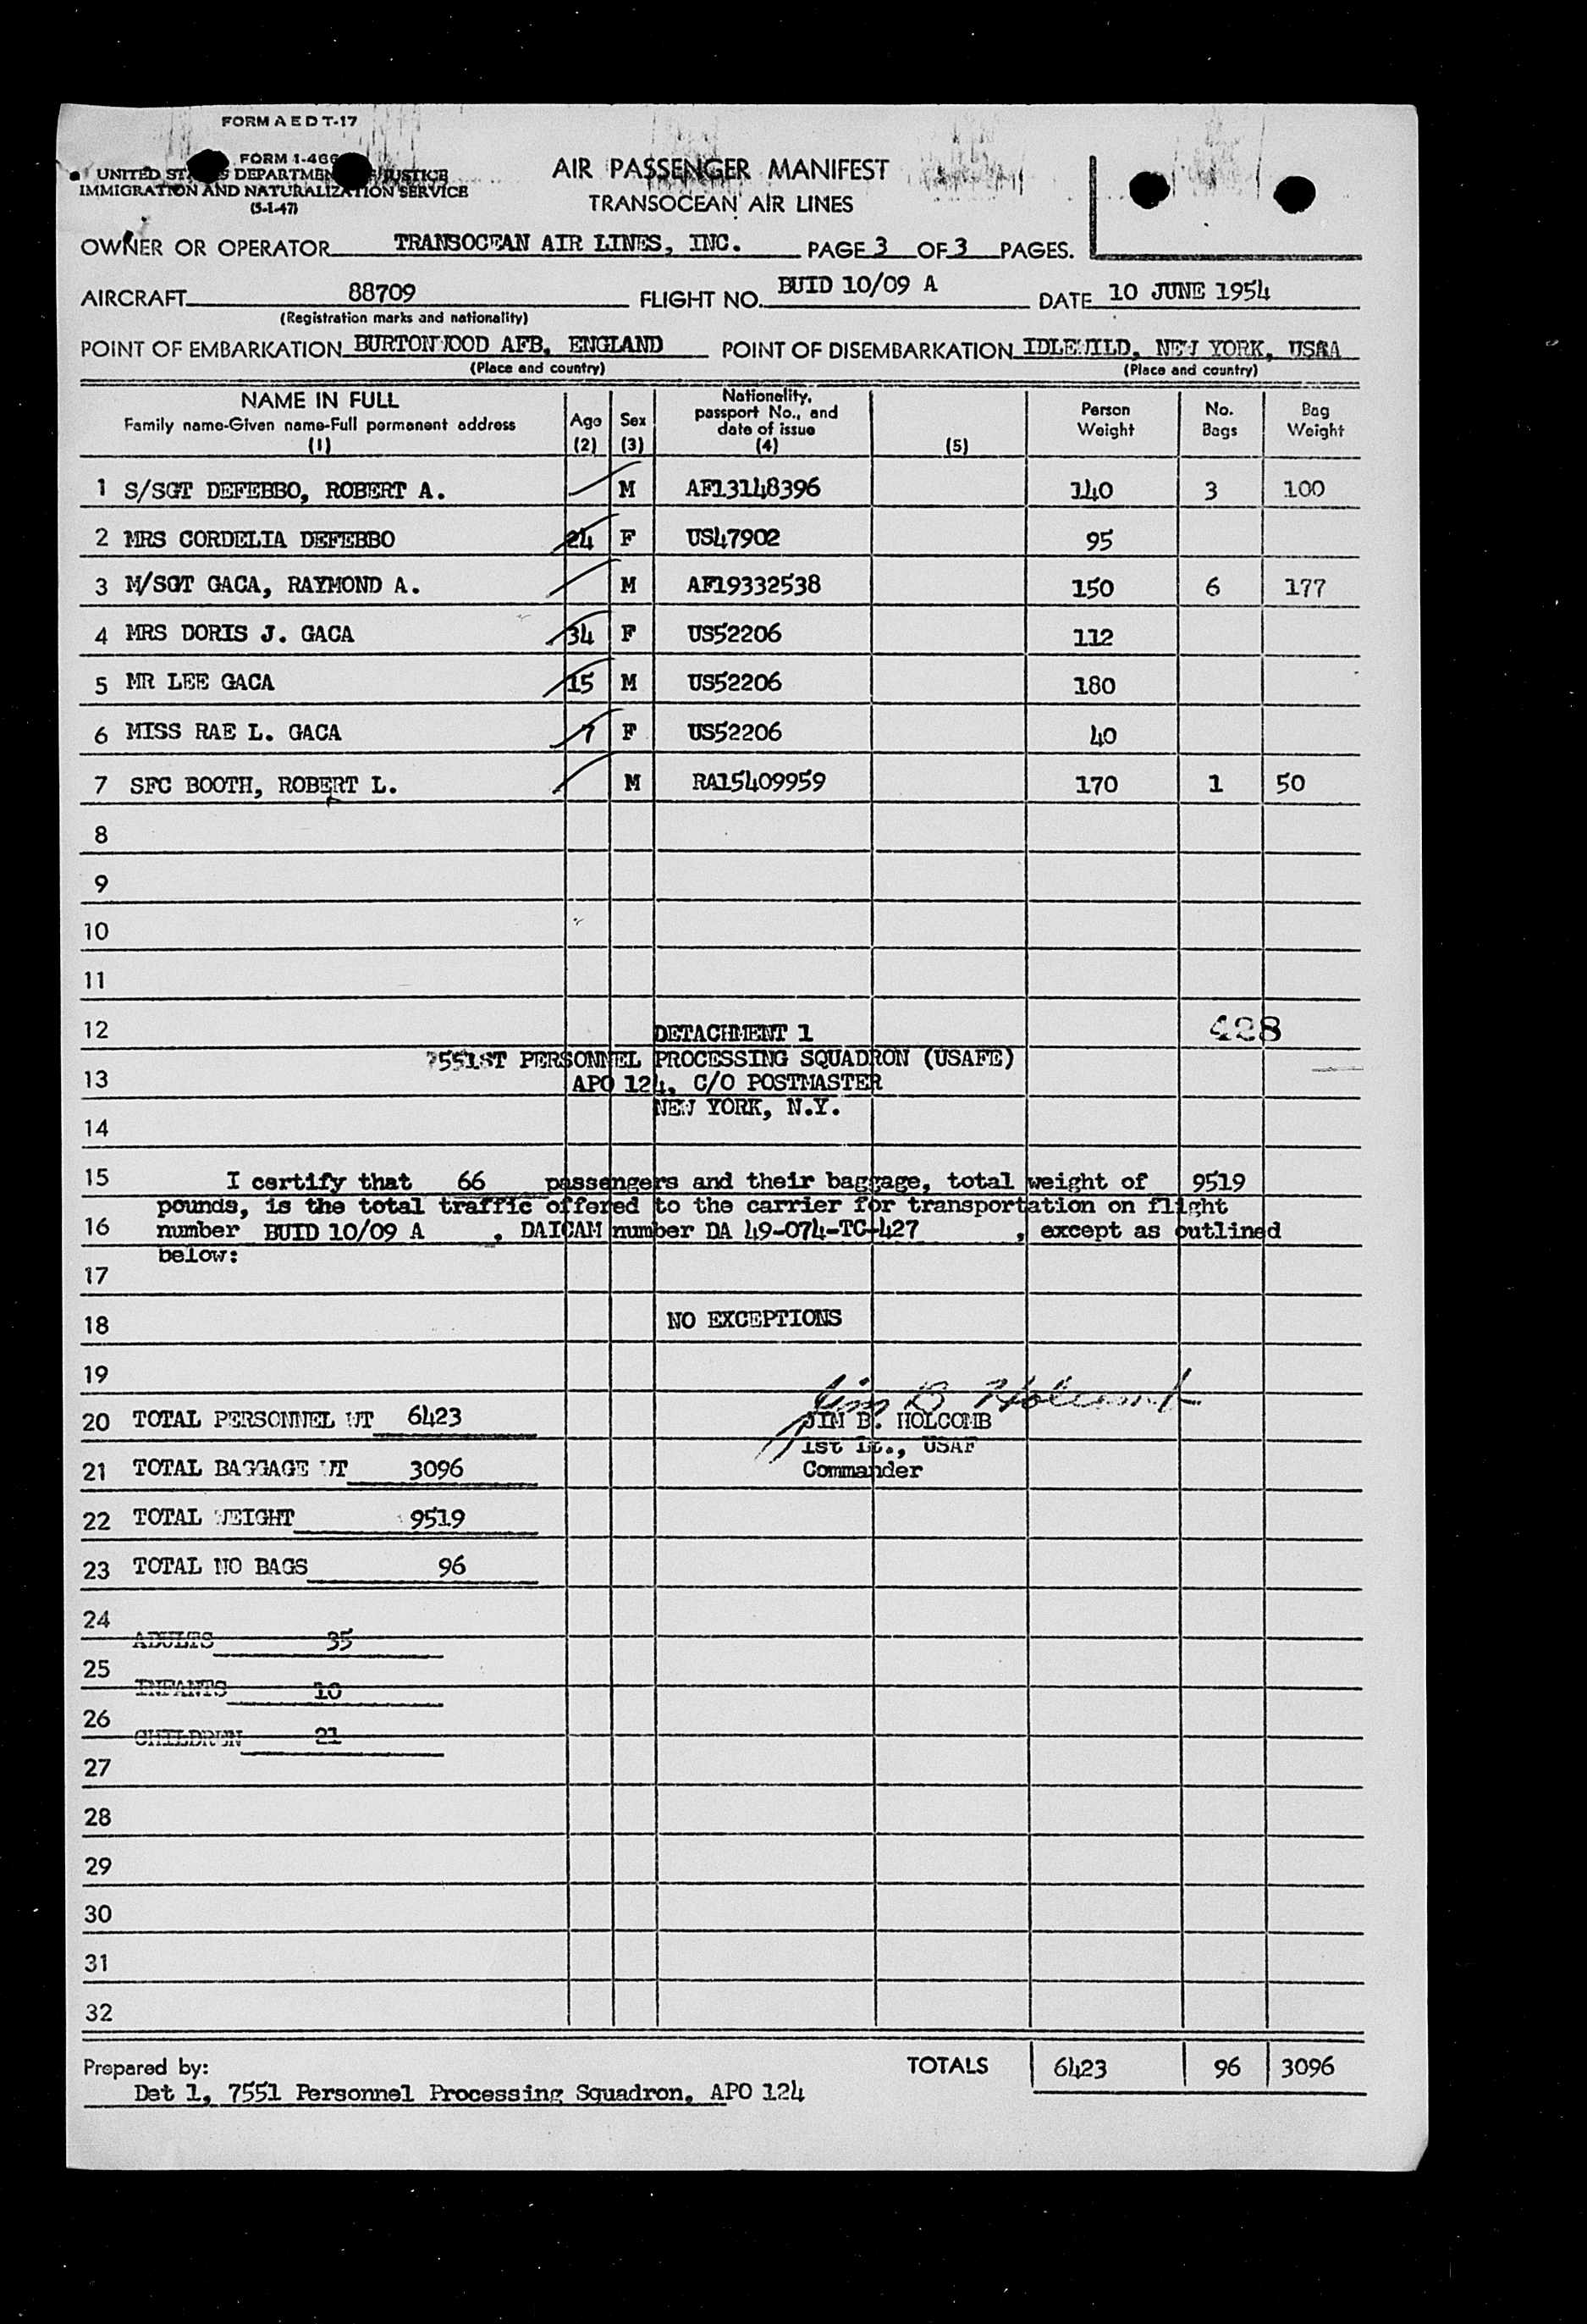 FORM A E D T-17
FORM 1-466
UNITED STATES DEPARTMENT OF JUSTICE
IMMIGRATION AND NATURALIZATION SERVICE
(5-1-47)
AIR PASSENGER MANIFEST
TRANSOCEAN AIR LINES
OWNER OR OPERATOR TRANSOCEAN AIR LINES, INC. PAGE 3 OF 3 PAGES.
AIRCRAFT 88709 FLIGHT NO. BUID 10/09 A DATE 10 JUNE 1954
(Registration marks and nationality)
POINT OF EMBARKATION BURTONWOOD AFB, ENGLAND POINT OF DISEMBARKATION IDLEWILD, NEW YORK, USA
(Place and country) (Place and country)
NAME IN FULL
Family name-Given name-Full permanent address
(1)
Age
(2)
Sex
(3)
Nationality,
passport No., and
date of issue
(4)
(5)
Person
Weight
No.
Bags
Bag
Weight
1 S/SGT DEFEBBO, ROBERT A. M AF13148396 140 3 100
2 MRS CORDELIA DEFEBBO 24 F US47902 95
3 M/SGT GACA, RAYMOND A. M AF19332538 150 6 177
4 MRS DORIS J. GACA 34 F US52206 112
5 MR LEE GACA 15 M US52206 180
6 MISS RAE L. GACA 7 F US52206 40
7 SFC BOOTH, ROBERT L. M RA15409959 170 1 50
8
9
10
11
12 DETACHMENT 1 428
7551ST PERSONNEL PROCESSING SQUADRON (USAFE)
13 APO 124, C/O POSTMASTER
NEW YORK, N.Y.
14
15 I certify that 66 passengers and their baggage, total weight of 9519
pounds, is the total traffic offered to the carrier for transportation on flight
16 number BUID 10/09 A , DAICAM number DA 49-074-TC-427 , except as outlined
below:
17
18 NO EXCEPTIONS
19 Jim B Holcomb
20 TOTAL PERSONNEL WT 6423 JIM B. HOLCOMB
1st Lt., USAF
21 TOTAL BAGGAGE WT 3096 Commander
22 TOTAL WEIGHT 9519
23 TOTAL NO BAGS 96
24
ADULTS 35
25
INFANTS 10
26
CHILDREN 21
27
28
29
30
31
32
Prepared by: TOTALS 6423 96 3096
Det 1, 7551 Personnel Processing Squadron, APO 124